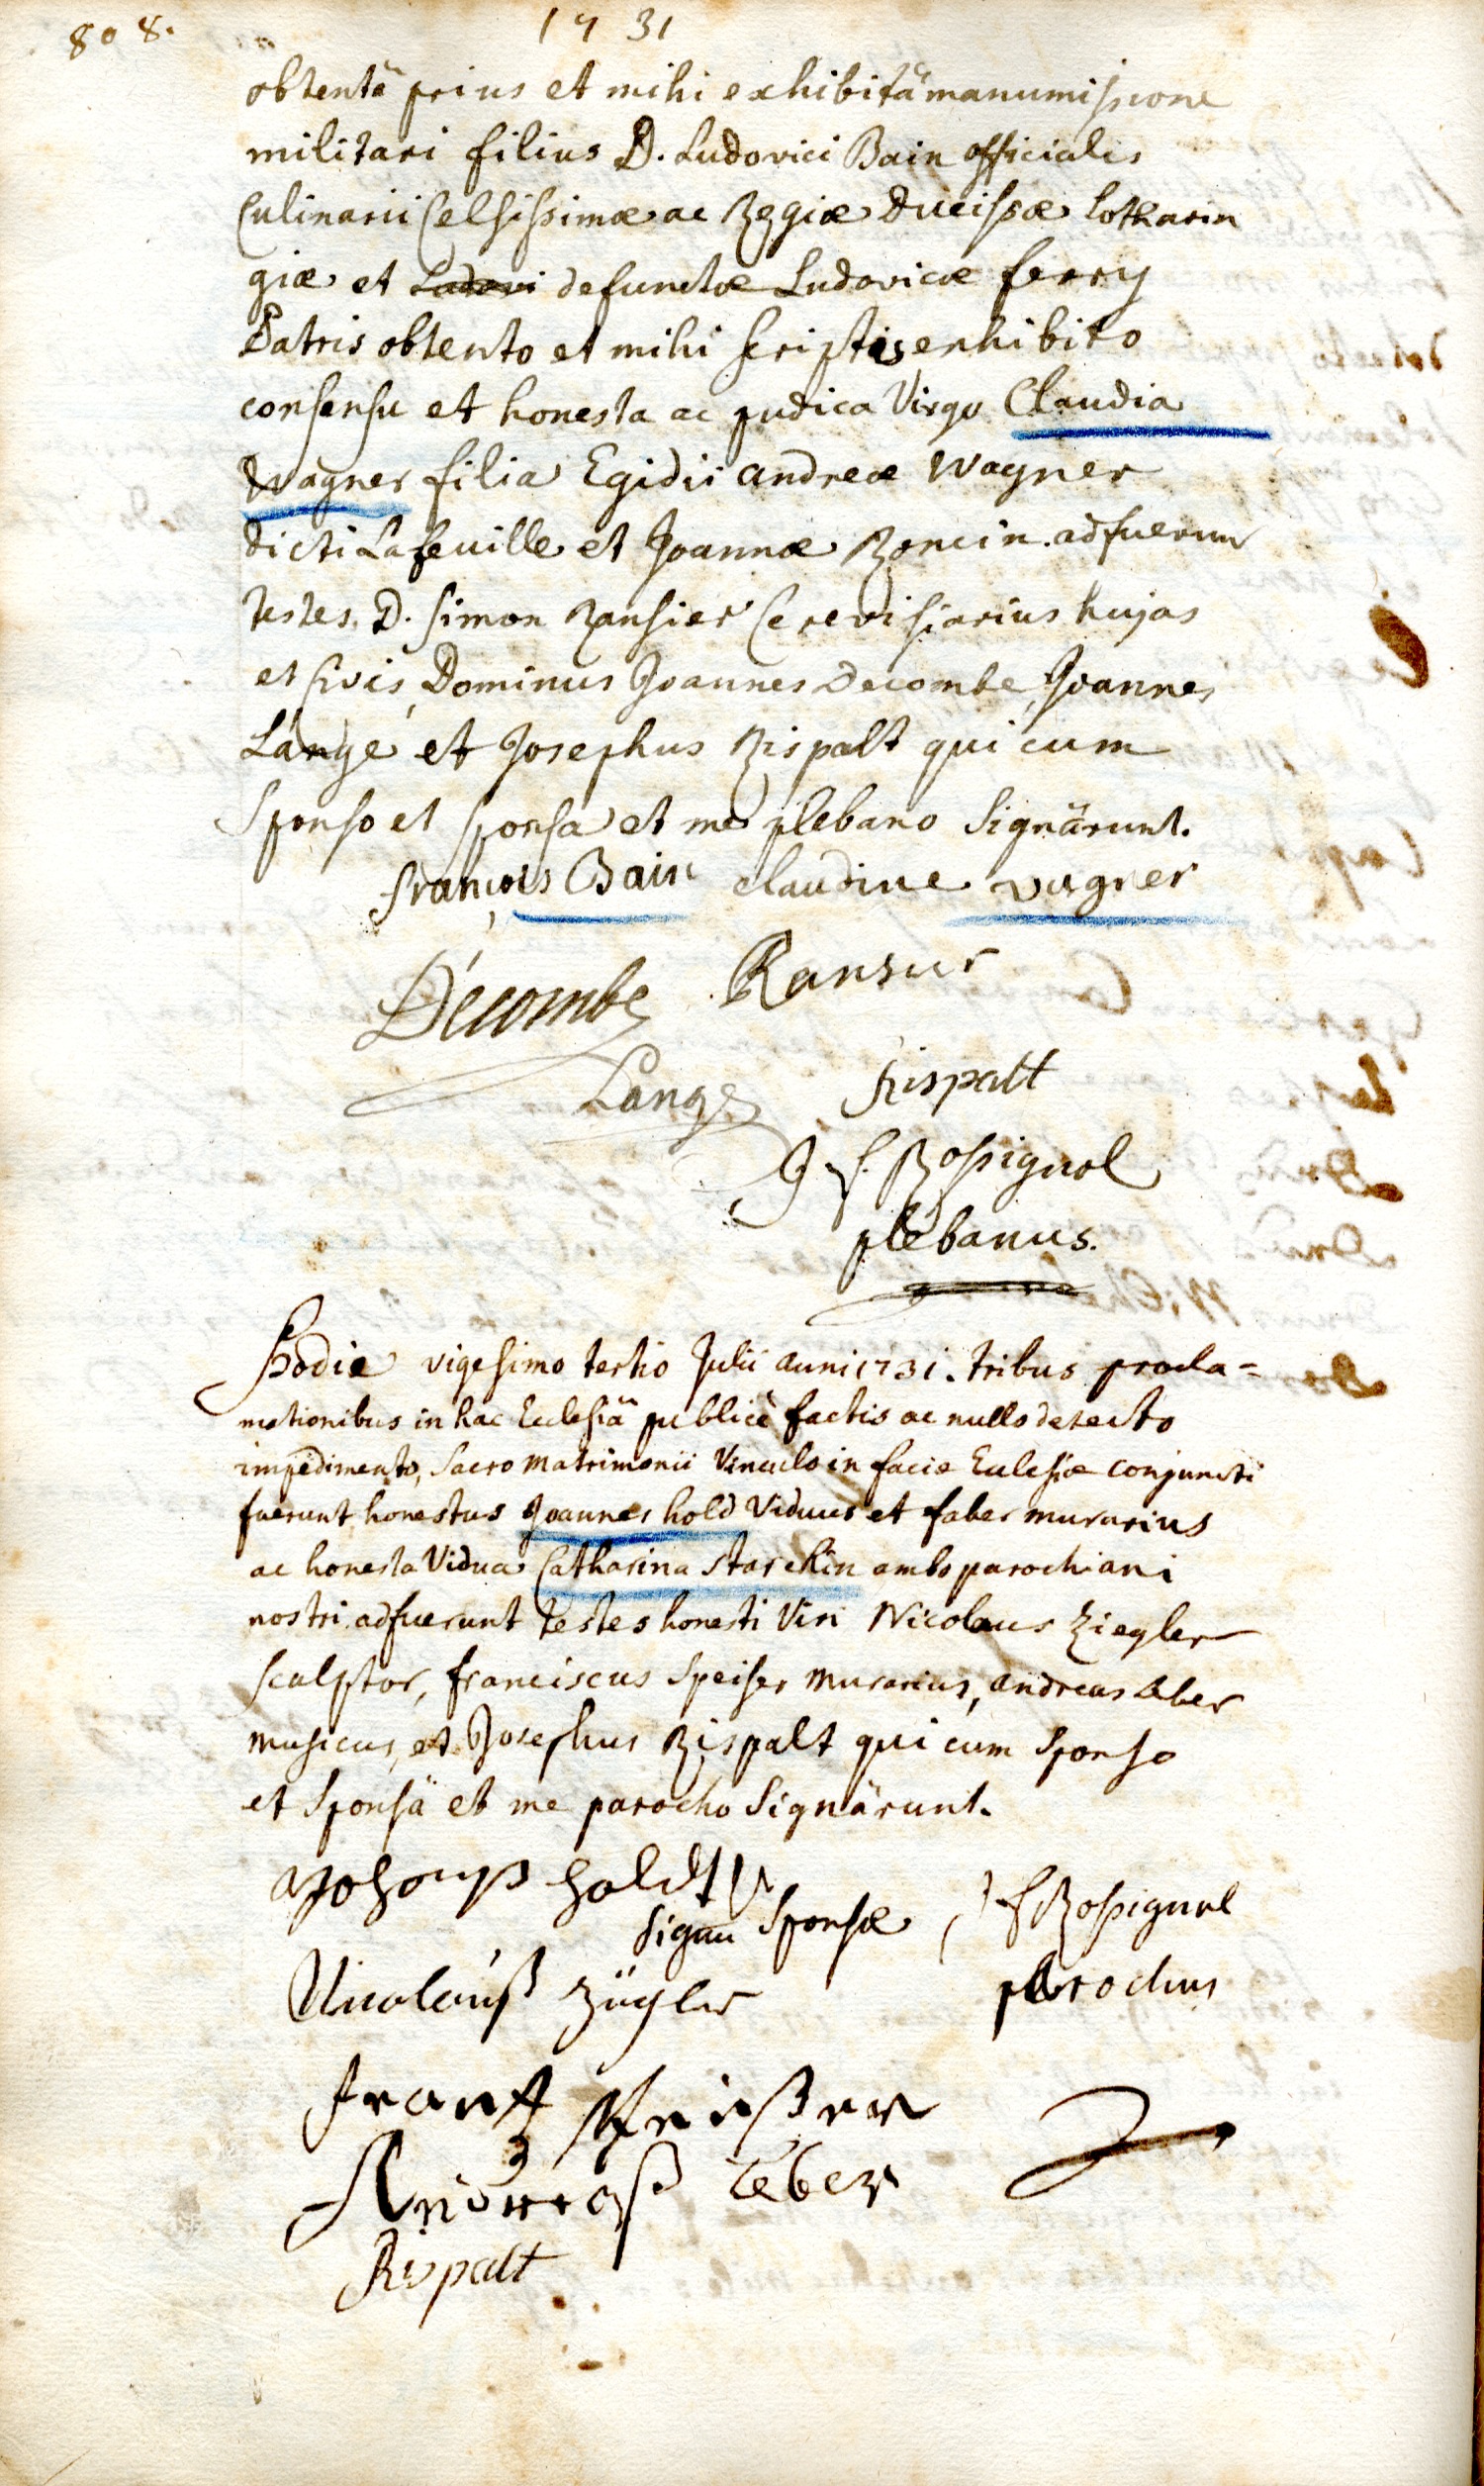 808.
1731
obtentâ prius et mihi exhibitâ manumissione
militari filius D. Ludovici Bain officialis
Culinarii Celsissimæ ac Regiæ Ducissæ Lotharin
giæ et defunctæ Ludovicæ ferry
Patris obtento et mihi scriptis exhibito
consensu et honesta ac pudica Virgo Claudia
Wagner filia Egidii andreæ Wagner
dicti Lafeuille et Joannæ Roncin. adfuerunt
testes. D. Simon Ransier Cerevisiarius hujas
et Civis, Dominus Joannes Decombe, Joannes
Lange et Josephus Rispalt qui cum
Sponso et sponsa et me plebano Signârunt.
françois Bain claudine vagner
Décombe Ransur
Lange Rispalt
J f. Rossignol
plebanus.
Hodie vigesimo tertio Julii anni 1731. tribus procla=
mationibus in hac Ecclesiâ publicè factis ac nullo detecto
impedimento, Sacro Matrimonii Vinculo in facie Ecclesiæ conjuncti
fuerunt honestus Joannes hold Viduus et faber murarius
ac honesta Vidua Catharina Starckin ambo parochiani
nostri. adfuerunt testes honesti Viri Nicolaus Ziegler
sculptor, franciscus Speiser murarius, andreas aber
musicus, et Josephus Rispalt qui cum Sponso
et Sponsâ et me parocho Signârunt.
Johanß Holdt
Signu Sponsæ J f Rossignol
Nicolauß Zügler parochus
Frantz Speißer
Andreaß Eber
Rispalt